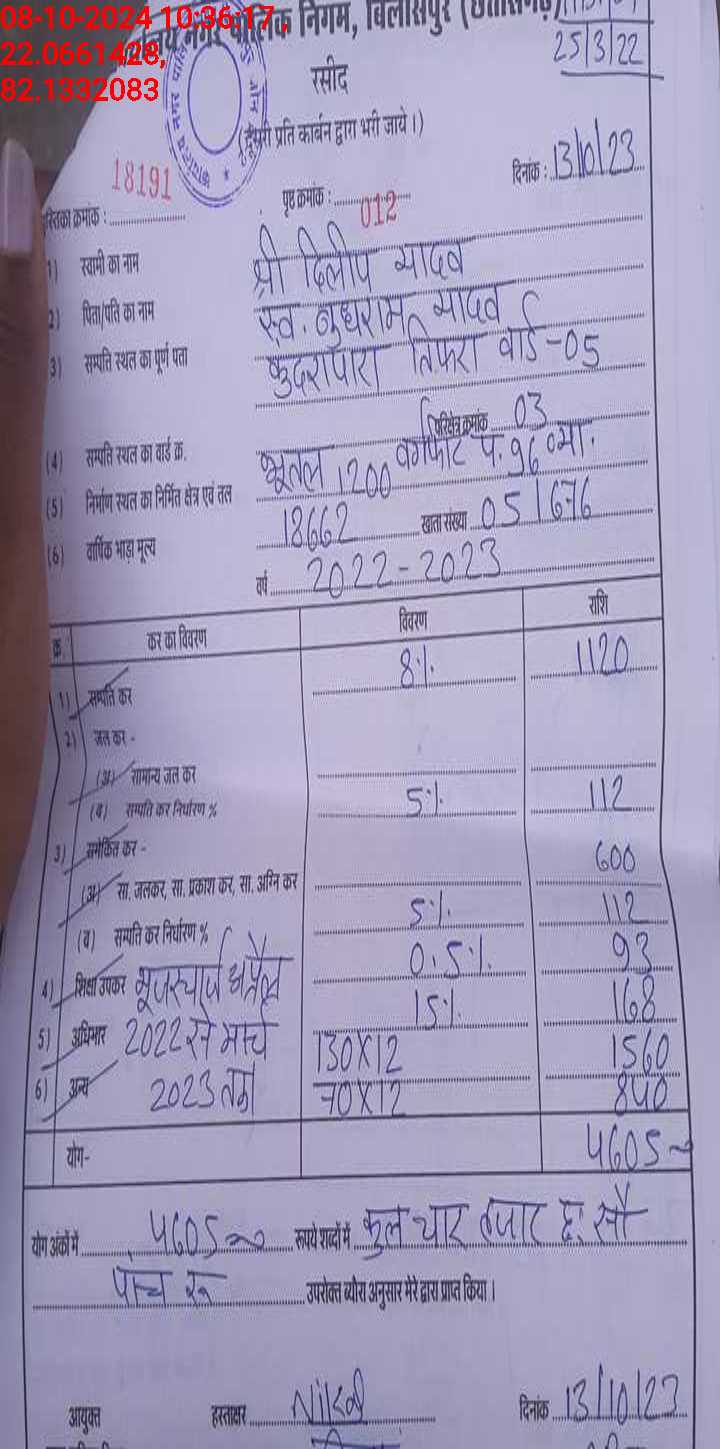 08-10-2024 10:36:17,
22.0661428,
82.1332083
नगर पालिक निगम, बिलासपुर
25/3/22
रसीद
प्रति कार्बन द्वारा भरी जाये।)
18191
क्रमांक :
पृष्ठ क्रमांक : 012
दिनांक : 13/10/23
1) स्वामी का नाम श्री दिलीप यादव
2) पिता/पति का नाम स्व. बुधराम यादव
3) सम्पति स्थल का पूर्ण पता कुदरापारा तिफरा वार्ड-05
(4) सम्पति स्थल का वार्ड क्र. परिक्षेत्र क्रमांक 03
(5) निर्माण स्थल का निर्मित क्षेत्र एवं तल भूतल 1200 वर्गफीट
(6) वार्षिक भाड़ा मूल्य 18662 खाता संख्या 051676
वर्ष 2022-2023
क्र. कर का विवरण विवरण राशि
1) सम्पति कर 8% 1120
2) जल कर -
(अ) सामान्य जल कर
(ब) सम्पति कर निर्धारण % 5% 112
3) समेकित कर - 600
(अ) सा. जलकर, सा. प्रकाश कर, सा. अग्नि कर
(ब) सम्पति कर निर्धारण % 5% 112
4) शिक्षा उपकर यूजरचार्ज अप्रैल 0.5% 93
5) अधिभार 2022 से मार्च 15% 168
6) अन्य 2023 तक 130X12 1560
70X12 840
योग- 4605
योग अंकों में 4605 रूपये शब्दों में कुल चार हजार छः सौ
पांच रू उपरोक्त ब्यौरा अनुसार मेरे द्वारा प्राप्त किया।
आयुक्त हस्ताक्षर दिनांक 13/10/23